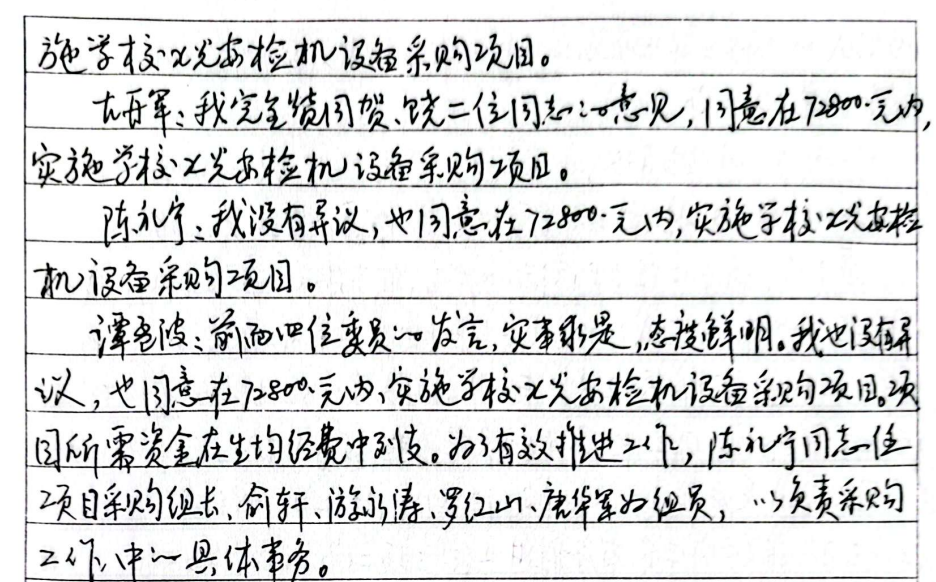 施学校X光安检机设备采购项目。
古再军：我完全赞同贺、饶二位同志的意见，同意在72800.元内，
实施学校X光安检机设备采购项目。
陈礼宁：我没有异议，也同意在72800.元内，实施学校X光安检
机设备采购项目。
谭波：前面四位委员的发言，实事求是，态度鲜明。我也没有异
议，也同意在72800.元内，实施学校X光安检机设备采购项目。项
目所需资金在生均经费中列支。为了有效推进工作，陈礼宁同志任
项目采购组长、俞轩、游永涛、罗红山、唐华军为组员，以负责采购
工作中的具体事务。